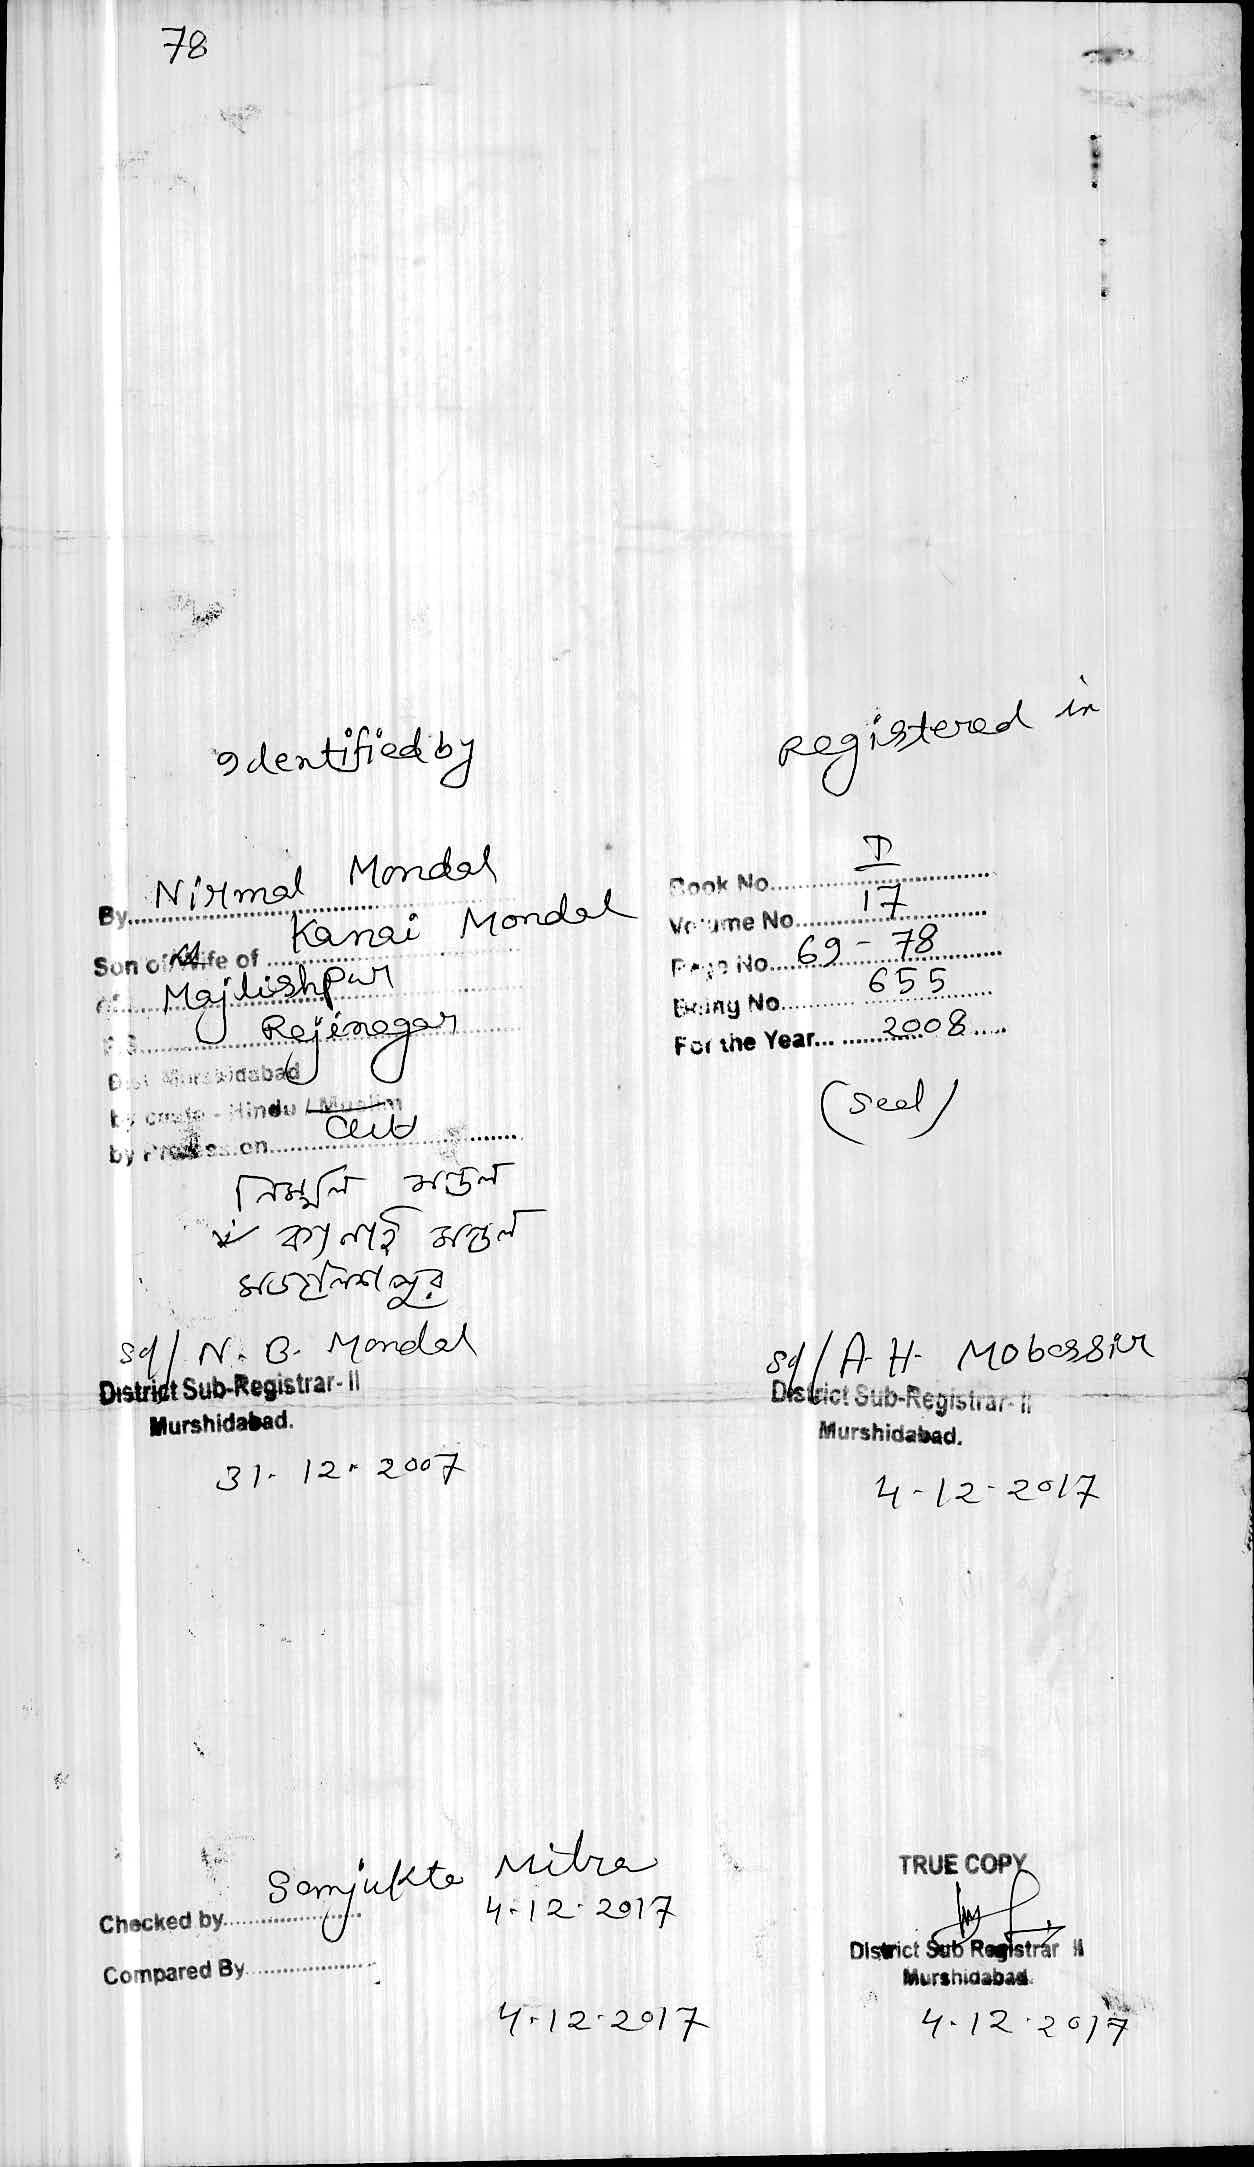 78
Identified by
By Nirmal Mondal
Son of/Wife of Kanai Mondal
of Majlishpur
P.S. Rejinagar
Dist. Murshidabad
by caste - Hindu / Muslim
by Profession
নির্মল মন্ডল
কানাই মন্ডল
মজলিশপুর
sd/ N. B. Mondal
District Sub-Registrar- II
Murshidabad.
31. 12. 2007
Registered in
Book No. I
Volume No. 17
Page No. 69 - 78
Being No. 655
For the Year 2008
(Seal)
sd/ A. H. Mobassir
District Sub-Registrar- II
Murshidabad.
4-12-2017
Checked by Samjukta Mitra
4.12.2017
Compared By
4.12.2017
TRUE COPY
District Sub Registrar II
Murshidabad
4.12.2017